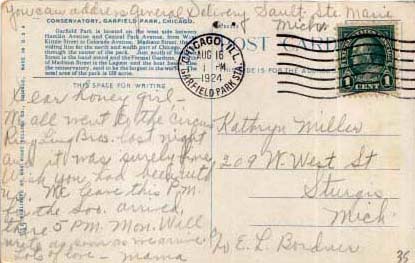 You can address General Delivery Sault Ste. Marie
Mich
CONSERVATORY, GARFIELD PARK, CHICAGO.
Garfield Park is located on the west side between
Hamlin Avenue and Central Park Avenue, from West
Kinzie Street to Colorado Avenue, Madison Street di-
viding him for the north and south part of Chicago,
through the center of the park. Just south of
Street is the band stand and the Formal Gardens.
of Madison Street is the Lagoon and the boat house
the conservatory, said to be the largest in the world
total area of the park is 188 acres.
POST CARD
THIS SPACE FOR WRITING
IS FOR THE ADDRESS
CHICAGO, ILL.
AUG 16
1 PM
1924
GARFIELD PARK STA.
1 CENT 1
MADE IN U.S.A.
Dear Honey Girl
We all went to the Circus
Ringling Bros. last night
and it was surely fine
Wish you had been with
us. We leave this P.M.
for the Soo. arrive
there 5 P.M. Mon. Will
write as soon as we arrive
Lots of love - Mama
Kathryn Miller
209 W. West St
Sturgis
Mich.
c/o E. L. Bordner
39